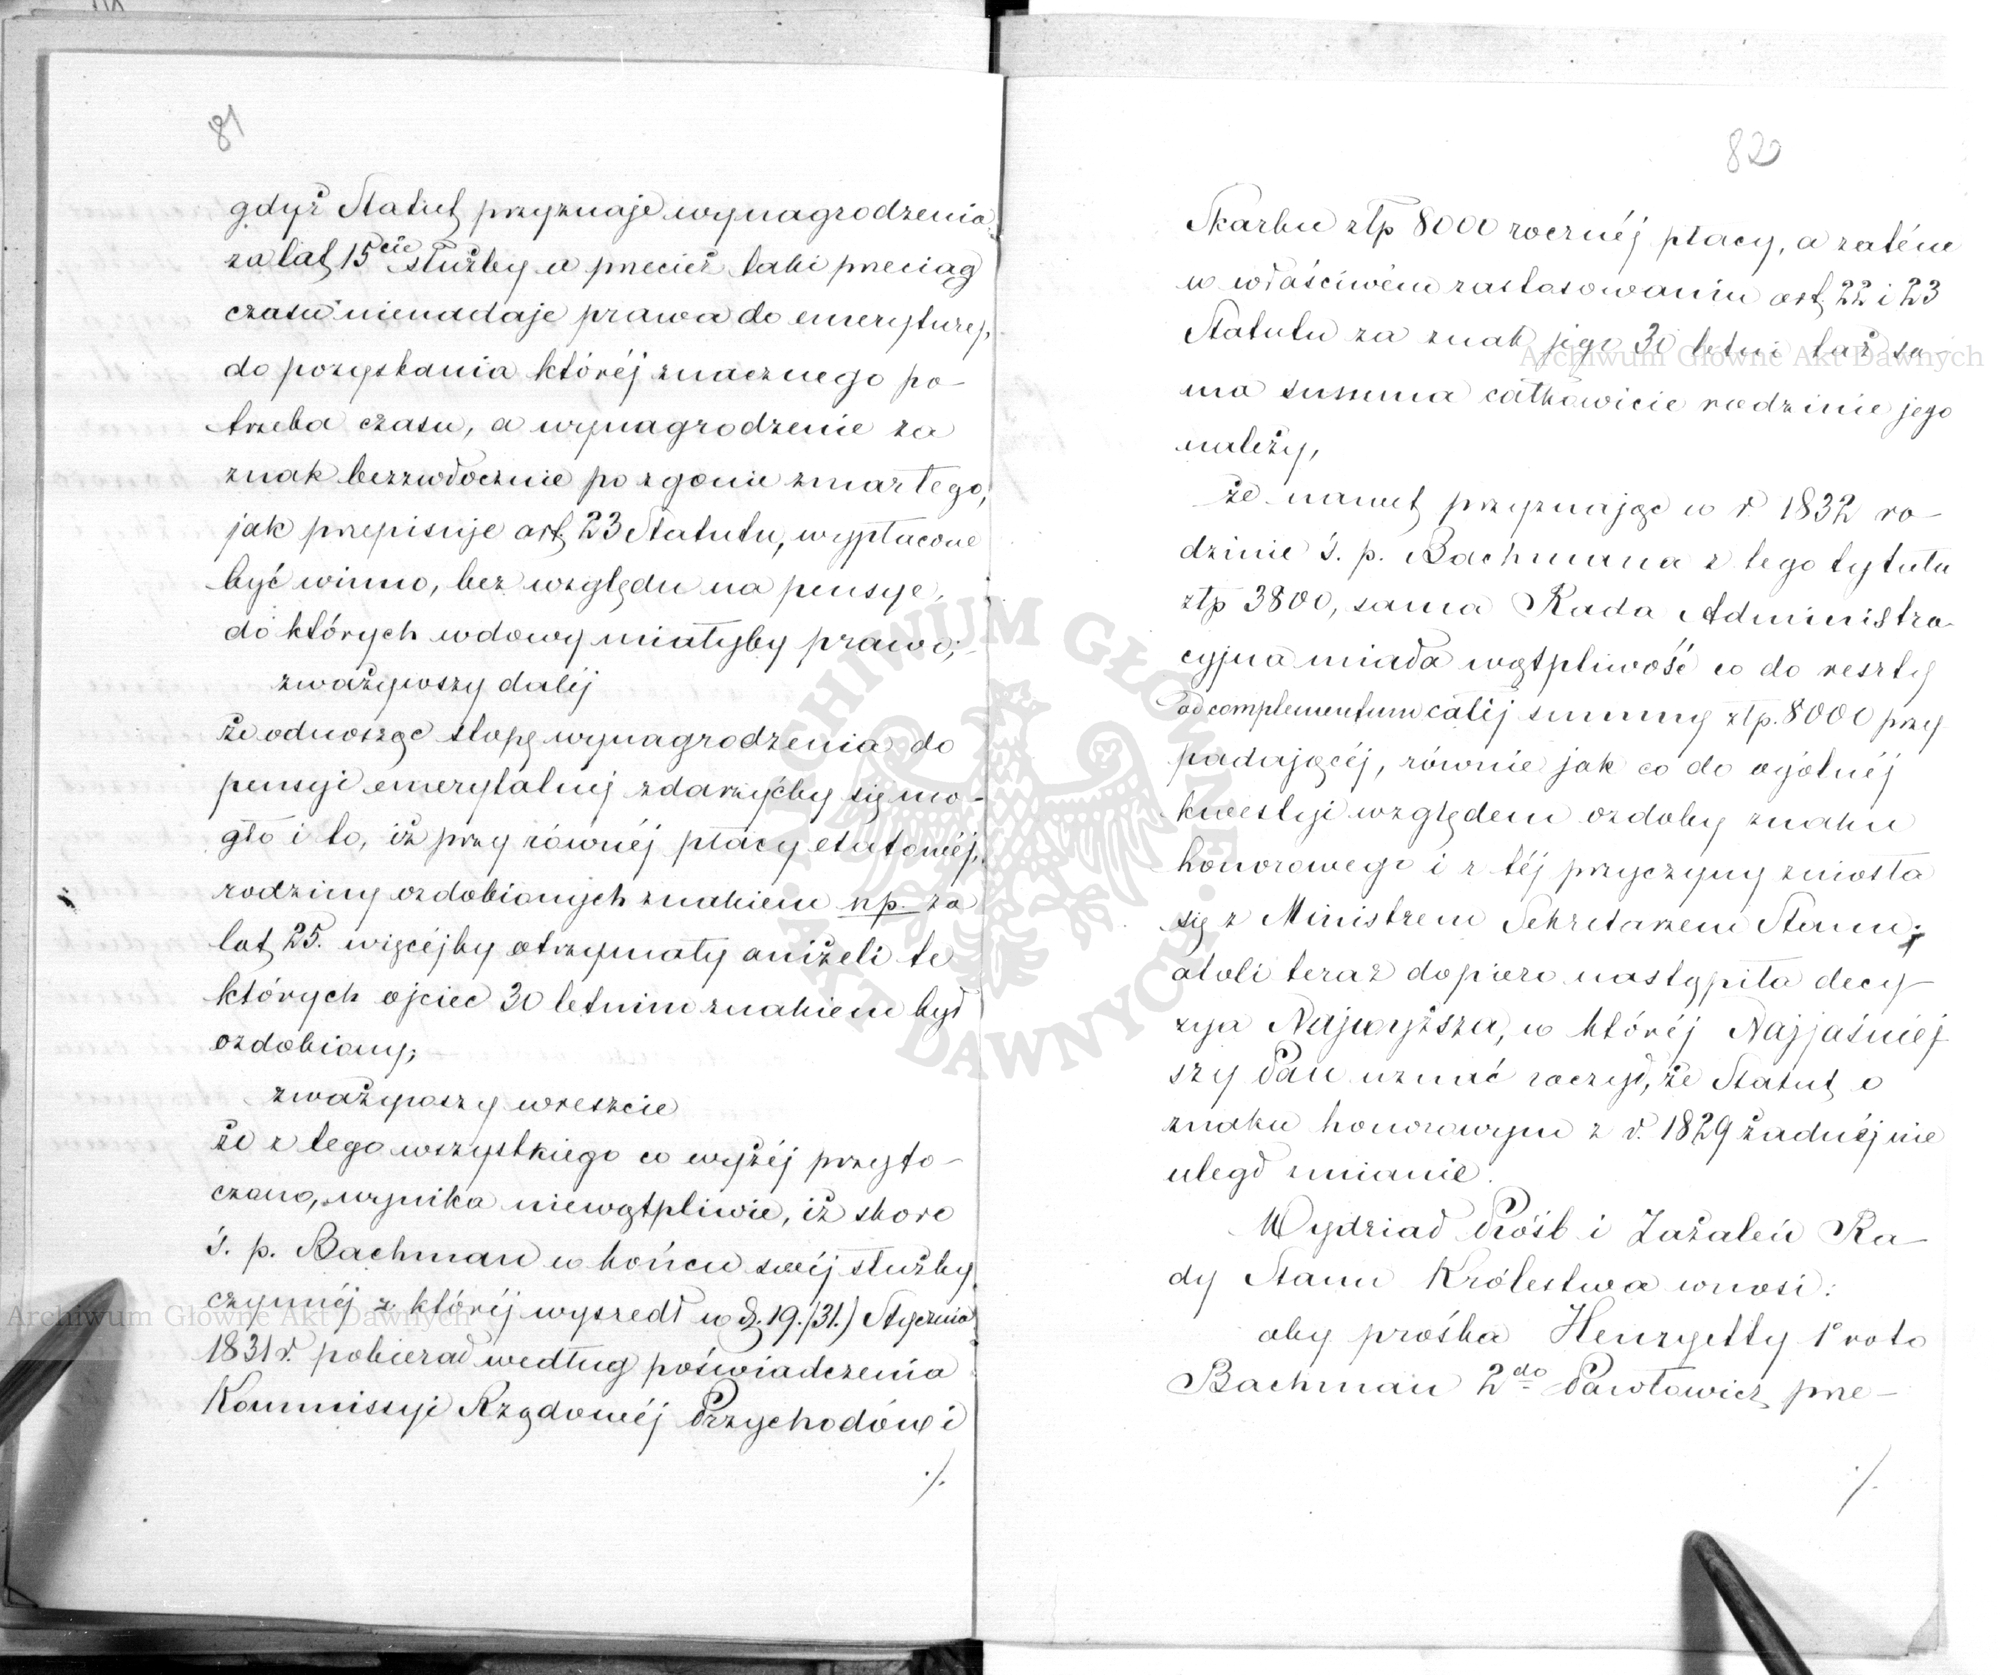 81
gdyż Statut przyznaje wynagrodzenia
za lat 15cie służby a przecież taki przeciąg
czasu nienadaje prawa do emerytury,
do pozyskania któréj znacznego po-
trzeba czasu, a wynagrodzenie za
znak bezzwłocznie po zgonie zmarłego,
jak przepisuje art. 23 Statutu, wypłacone
być winno, bez względu na pensye,
do których wdowy miałyby prawo;
zważywszy daléj
że odnosząc stopę wynagrodzenia do
pensyi emerytalnéj zdarzyćby się mo-
gło i to, iż przy równéj płacy etatowéj,
rodziny ozdobionych znakiem np. za
lat 25. więcéjby otrzymały aniżeli te
których ojciec 30 letnim znakiem był
ozdobiony;
zważywszy wreszcie
że z tego wszystkiego co wyżéj przyto-
czono, wynika niewątpliwie, iż skoro
ś. p. Bachman w końcu swéj służby
czynnéj z któréj wyszedł w d. 19./31.) Stycznia
1831 r. pobierał według poświadczenia
Kommissyi Rządowéj Przychodów i
./.
82
Skarbu złp 8000 rocznéj płacy, a zatém
w właściwém zastosowaniu art. 22 i 23
Statutu za znak jego 30 letni taż sa
ma summa całkowicie rodzinie jego
należy,
że nawet przyznając w r 1832 ro-
dzinie ś. p. Bachmana z tego tytułu
złp 3800, sama Rada Administra-
cyjna miała wątpliwość co do reszty
ad complementum całéj summy złp. 8000 przy
padającéj, równie jak co do ogólnéj
kwestyi względem ozdoby znaku
honorowego i z téj przyczyny zniosła
się z Ministrem Sekretarzem Stanu;
atoli teraz dopiero nastąpiła decy-
zya Najwyższa, w któréj Najjaśniej
szy Pan uznać raczył, że Statut o
znaku honorowym z r. 1829 żadnéj nie
uległ zmianie.
Wydział Próśb i Zażaleń Ra-
dy Stanu Królestwa wnosi:
aby prośba Henryetty 1o voto
Bachman 2do Pawłowicz prze-
./.
Archiwum Główne Akt Dawnych
Archiwum Główne Akt Dawnych
ARCHIWUM GŁÓWNE AKT DAWNYCH